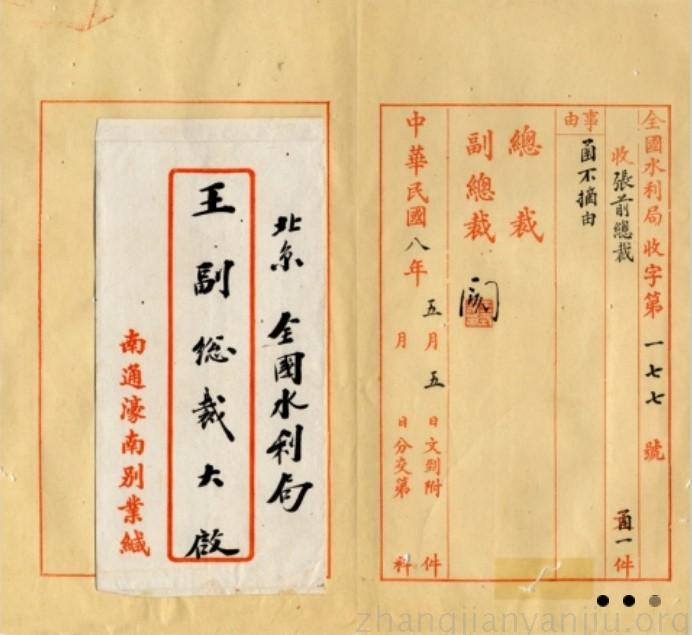 全國水利局收字第一七七號
收張前總裁
函一件
事由
函不摘由
總裁
副總裁
閱
中華民國八年五月五日文到附件
月 日分交第 科
北京 全國水利局
王副総裁大啟
南通濠南別業緘
zhangjianyanjiu.org